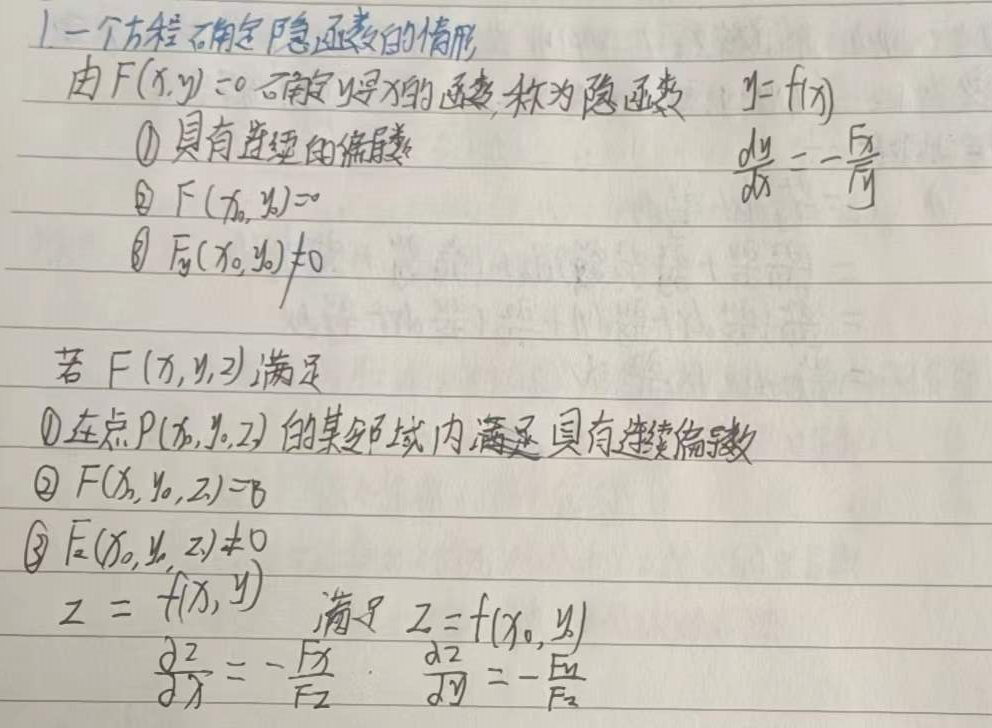 1.一个方程确定隐函数的情形
由F(x,y)=0确定y是x的函数,称为隐函数 y=f(x)
① 具有连续的偏导数 dy/dx=-Fx/Fy
② F(x₀,y₀)=0
③ Fy(x₀,y₀)≠0
若 F(x,y,z)满足
①在点P(x₀,y₀,z₀)的某邻域内满足具有连续偏导数
② F(x₀,y₀,z₀)=0
③ Fz(x₀,y₀,z₀)≠0
z = f(x,y) 满足 z=f(x₀,y₀)
∂z/∂x=-Fx/Fz. ∂z/∂y=-Fy/Fz